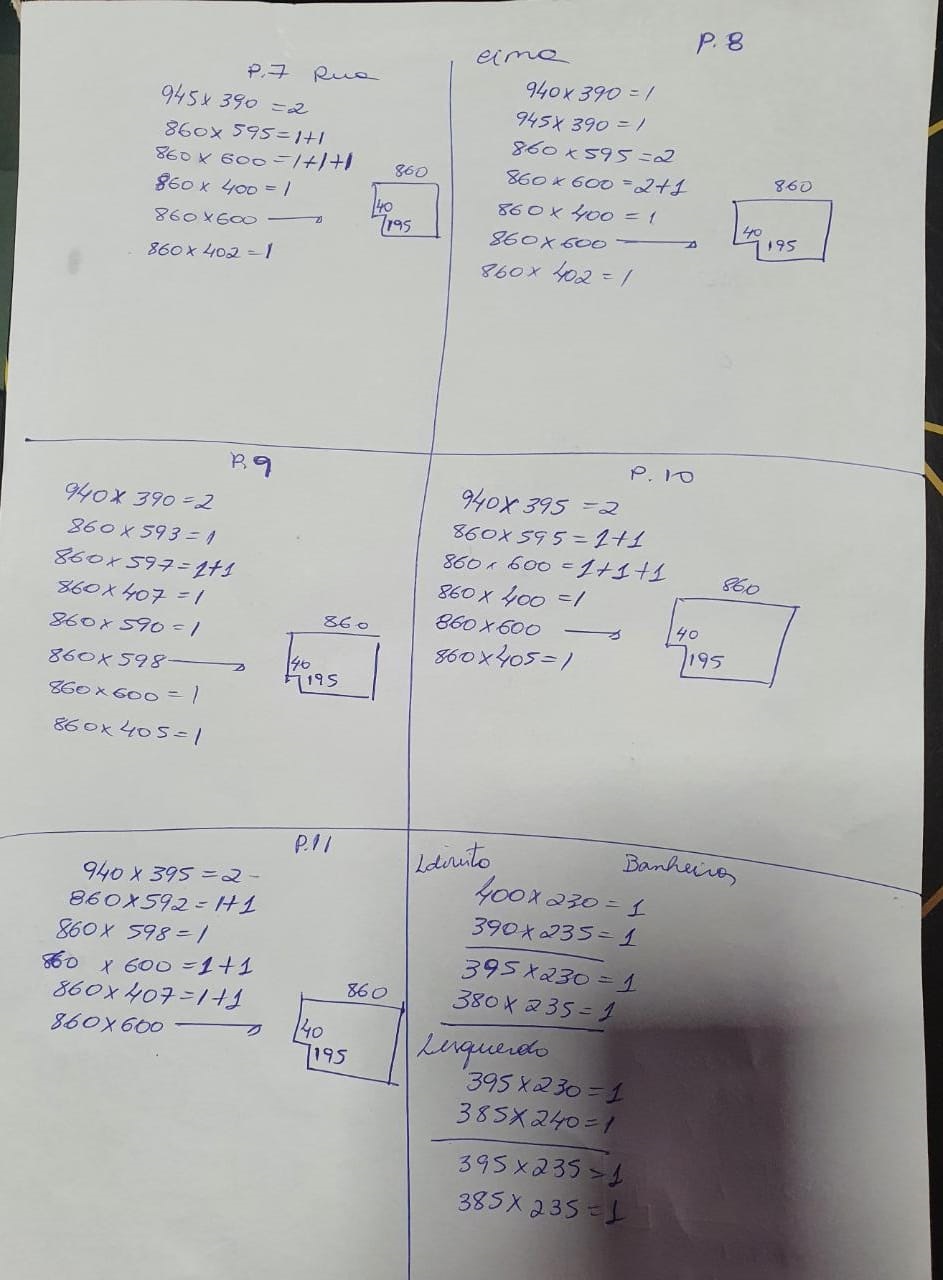 P.7 Rua
945 x 390 = 2
860 x 595 = 1+1
860 x 600 = 1+1+1
860 x 400 = 1
860 x 600 →
860
40
195
860 x 402 = 1
cima P.8
940 x 390 = 1
945 x 390 = 1
860 x 595 = 2
860 x 600 = 2+1
860 x 400 = 1
860 x 600 →
860
40
195
860 x 402 = 1
P.9
940 x 390 = 2
860 x 593 = 1
860 x 597 = 1+1
860 x 407 = 1
860 x 590 = 1
860 x 598 →
860
40
195
860 x 600 = 1
860 x 405 = 1
P.10
940 x 395 = 2
860 x 595 = 1+1
860 x 600 = 1+1+1
860 x 400 = 1
860 x 600 →
860
40
195
860 x 405 = 1
P.11
940 x 395 = 2 -
860 x 592 = 1+1
860 x 598 = 1
860 x 600 = 1+1
860 x 407 = 1+1
860 x 600 →
860
40
195
Ldireito Banheiros
400 x 230 = 1
390 x 235 = 1
395 x 230 = 1
380 x 235 = 1
Lesquerdo
395 x 230 = 1
385 x 240 = 1
395 x 235 = 1
385 x 235 = 1